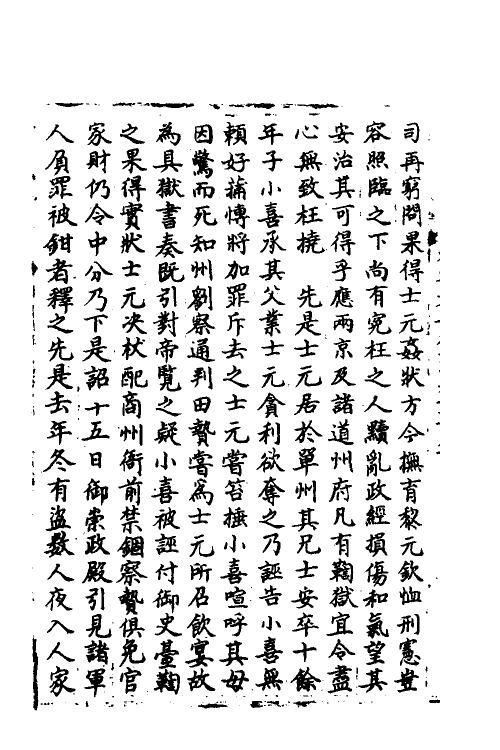 司再窮問果得士元姦狀方今撫育黎元欽恤刑憲豈
容照臨之下尚有寃枉之人黷亂政經損傷和氣望其
安治其可得乎應兩京及諸道州府凡有鞫獄宜令盡
心無致枉撓　先是士元居於單州其兄士安卒十餘
年子小喜承其父業士元貪利欲奪之乃誣告小喜無
頼好蒱愽將加罪斥去之士元嘗笞捶小喜喧呼其母
因驚而死知州劉察通判田贄嘗爲士元所召飲宴故
為具獄書奏既引對帝覽之疑小喜被誣付御史臺鞫
之果得實狀士元决杖配商州衙前禁錮察贄俱免官
家財仍令中分乃下是詔十五日御崇政殿引見諸軍
人負罪被鉗者釋之先是去年冬有盗数人夜入人家